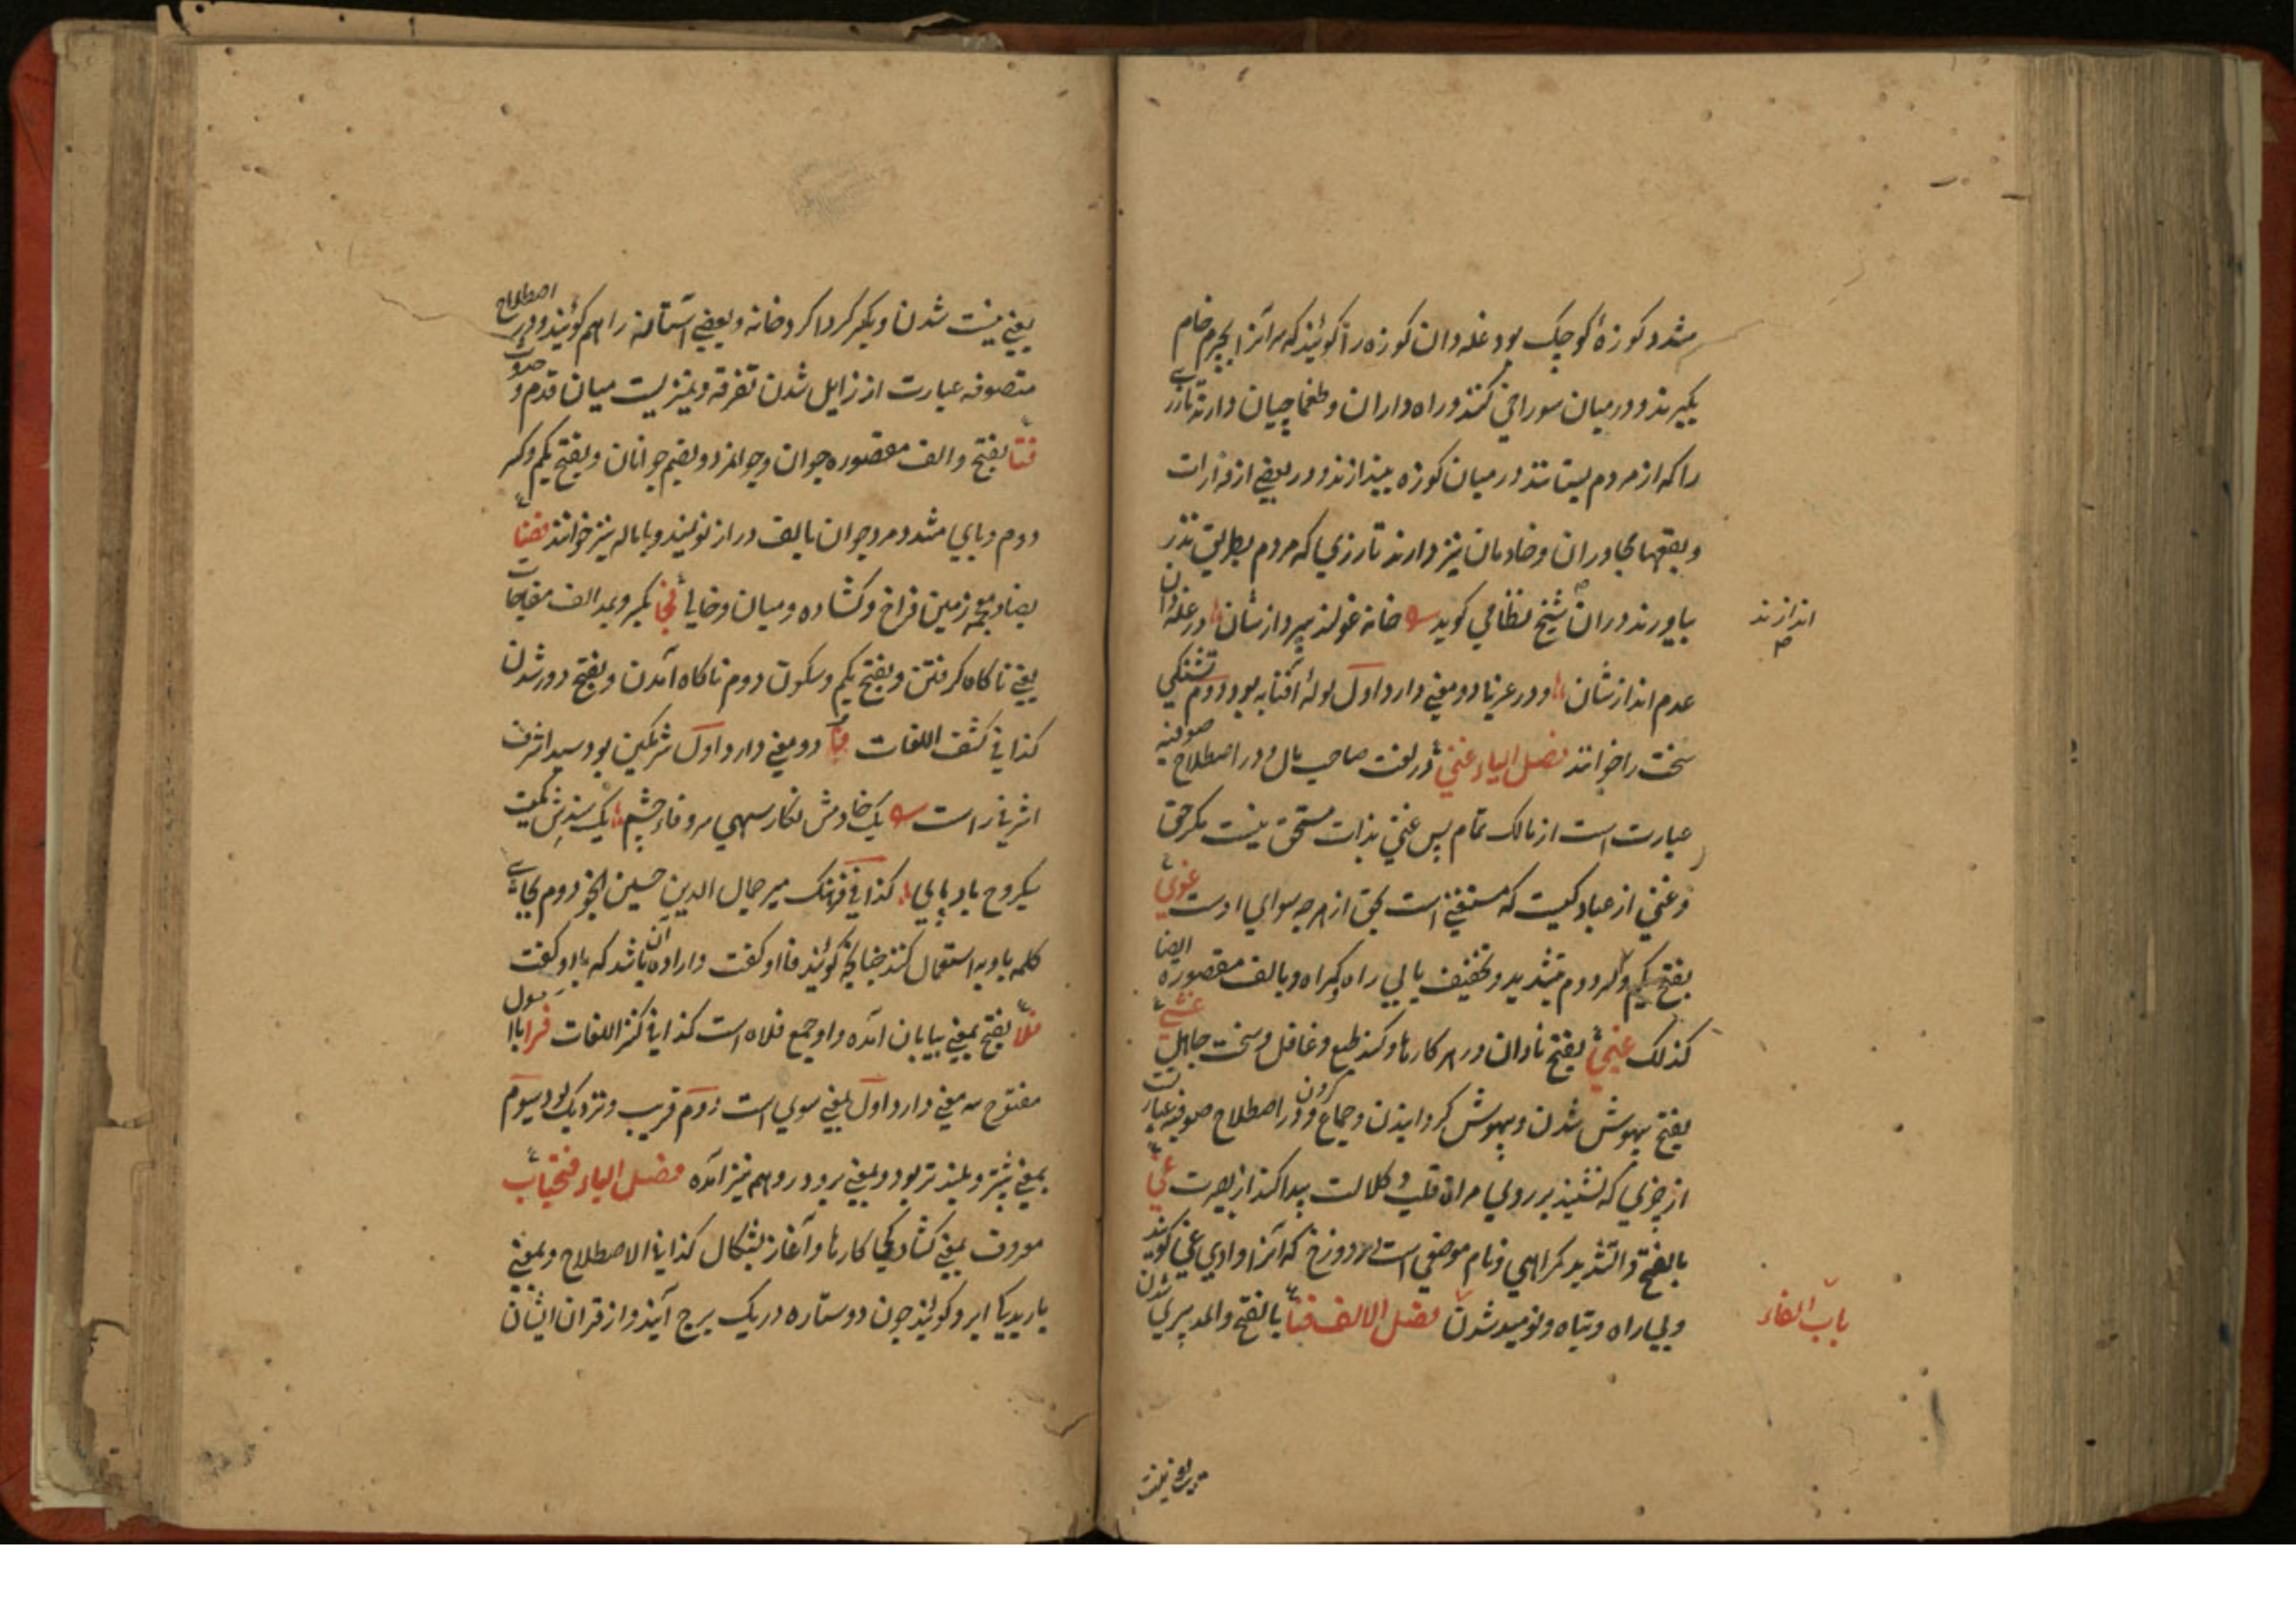 مشدد کوزهٔ کوچک بود غله دان کوزه را کویند که سر آنرا بچرم خام
بکیرند و در میان سوراخی کنند و راه داران و طمغاچیان دارند تا زری
را که از مردم بستانند در میان کوزه بیندازند و در بعضی از مزارات
و بقعها مجاوران و خادمان نیز دارند تا زری را که مردم بطریق نذر
بیاورند در ان شیخ نظامی کوید خانه غولند بپردازشان در غله دان
اندازند
عدم اندازشان و در عربی دو معنی دارد اول لولهٔ آفتابه بود دوم تشنکی
سخت را خوانند فصل الیاء غنی در لغت صاحب مال و در اصطلاح صوفیه
عبارت است از مالک تمام پس غنی بذات مستحق نیست مکر حق
و غنی از عباد کیست که مستغنی است بحق از هر چه سوای اوست غوی
بفتح یکم و کسر دوم بتشدید و تخفیف یا بی راه و کمراه و بالف مقصوره ایضا
کذلک غبی بفتح نادان در هر کارها و کند طبع و غافل و سخت جاهل غشی
بفتح بیهوش شدن و بیهوش کردانیدن و جماع کردن و در اصطلاح صوفیه عبارت
از چیزی که نشیند بر روی مرات قلب و کلالت پیدا کند از بصیرت غی
بالفتح و التشدید کمراهی و نام موضعی است در دوزخ که آنرا وادی غی کویند
و بیراه و تباه و نومید شدن فصل الالف فنا بالفتح والمد پیری شدن
باب الفاء
یعنی نیست شدن و بکسر کرداکرد خانه و بعضی آستانه را هم کویند و در اصطلاح
متصوفه عبارت از زایل شدن تفرقه و تمیز یست میان قدم و حدوث
فتا بفتح والف مقصوره جوان و جوانمرد و بضم جوانان و بفتح یکم و کسر
دوم و یای مشدد مرد جوان بالف دراز نویند و باماله نیز خوانند فضا
بضاد معجمه زمین فراخ و کشاده و میان و خالی فجا بکسر و بمد الف مفاجات
یعنی ناکاه کرفتن و بفتح یکم و سکون دوم ناکاه آمدن و بفتح دور شدن
کذا فی کشف اللغات فا دو معنی دارد اول شرمکین بود سید اشرف
اشرفی راست یک خادمش نکار سهی سرو فاء چشم یک بندش کمیت
سبکروح باد پای کذا فی فرهنک میر جمال الدین حسین انجو دوم بجای
کلمه با و به استعمال کنند چنانچه کویند فا او کفت و اراده آن باشد که باو کفت
فلا بفتح بمعنی بیابان آمده و او جمع فلاه است کذا فی کنز اللغات فرا با اول
مفتوح سه معنی دارد اول بمعنی سوی است دوم قریب و نزدیک بود سیوم
بمعنی بیشتر و بلند تر بود و بمعنی بر و در و هم نیز آمده فصل الباء فتحیاب
معروف بمعنی کشادکی کارها و آغاز بشکال کذا فی الاصطلاح و بمعنی
باریدن ابر و کویند چون دو ستاره در یک برج آیند و از قران ایشان